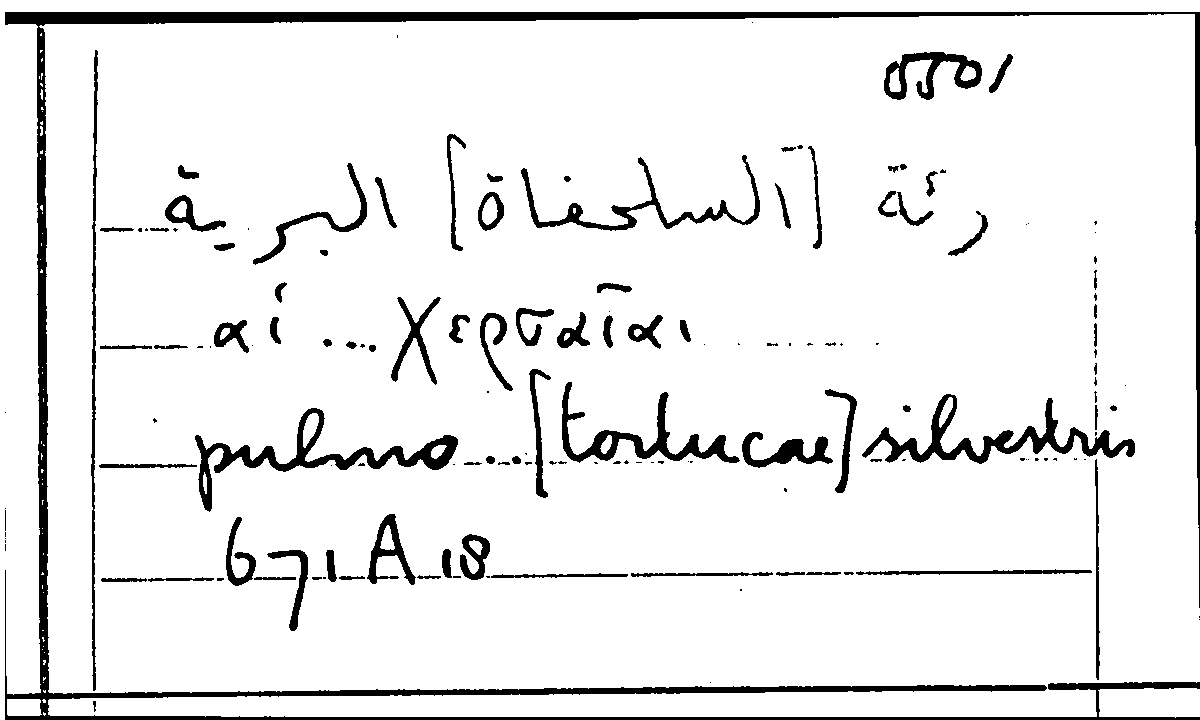 رئة [السلحفاة] البرية
αἱ ... χερσαῖαι
pulmo .. [tortucae] silvestris
671 A 18